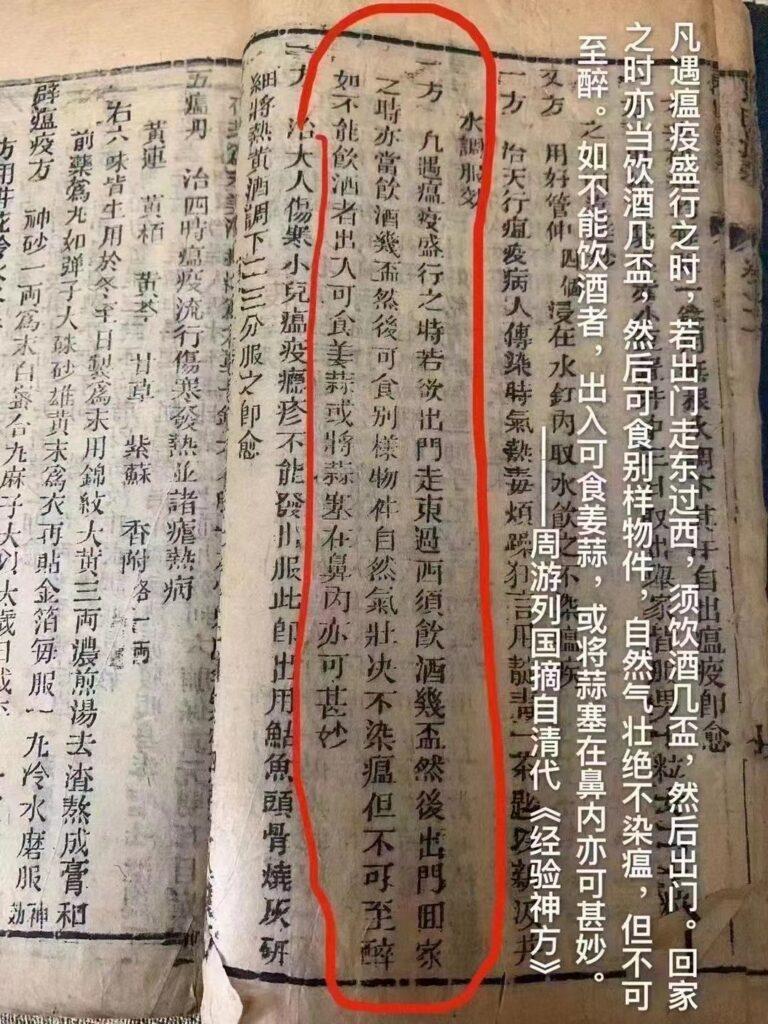 凡遇瘟疫盛行之时，若出门走东过西，须饮酒几盃，然后出门。回家
之时亦当饮酒几盃，然后可食别样物件，自然气壮绝不染瘟，但不可
至醉。如不能饮酒者，出入可食姜蒜，或将蒜塞在鼻内亦可甚妙。
——周游列国摘自清代《经验神方》
自出瘟疫即愈
又方 用好管仲四個浸在水缸內取水飲之不染瘟疾
一方 治天行瘟疫病人傳染時氣熱毒煩躁狂言用靛青一茶匙以新汲井
水調服効
一方 凡遇瘟疫盛行之時若欲出門走東過西須飲酒幾盃然後出門回家
之時亦當飲酒幾盃然後可食別樣物件自然氣壯决不染瘟但不可至醉
如不能飲酒者出入可食姜蒜或將蒜塞在鼻內亦可甚妙
一方 治大人傷寒小兒瘟疫癮疹不能發出服此即出用鮎魚頭骨燒灰研
細將熱黃酒調下二三分服之即愈
五瘟丹 治四時瘟疫流行傷寒發熱並諸瘧熱病
黃連 黃栢 黃芩 甘草 紫蘇 香附 各一両
右六味皆生用於冬至日製為末用錦紋大黃三両濃煎湯去渣熬成膏和
前藥為丸如彈子大硃砂雄黃末為衣再貼金箔每服一丸冷水磨服神効
辟瘟疫方 神砂一両為末白蜜合丸麻子大以太歲日或平